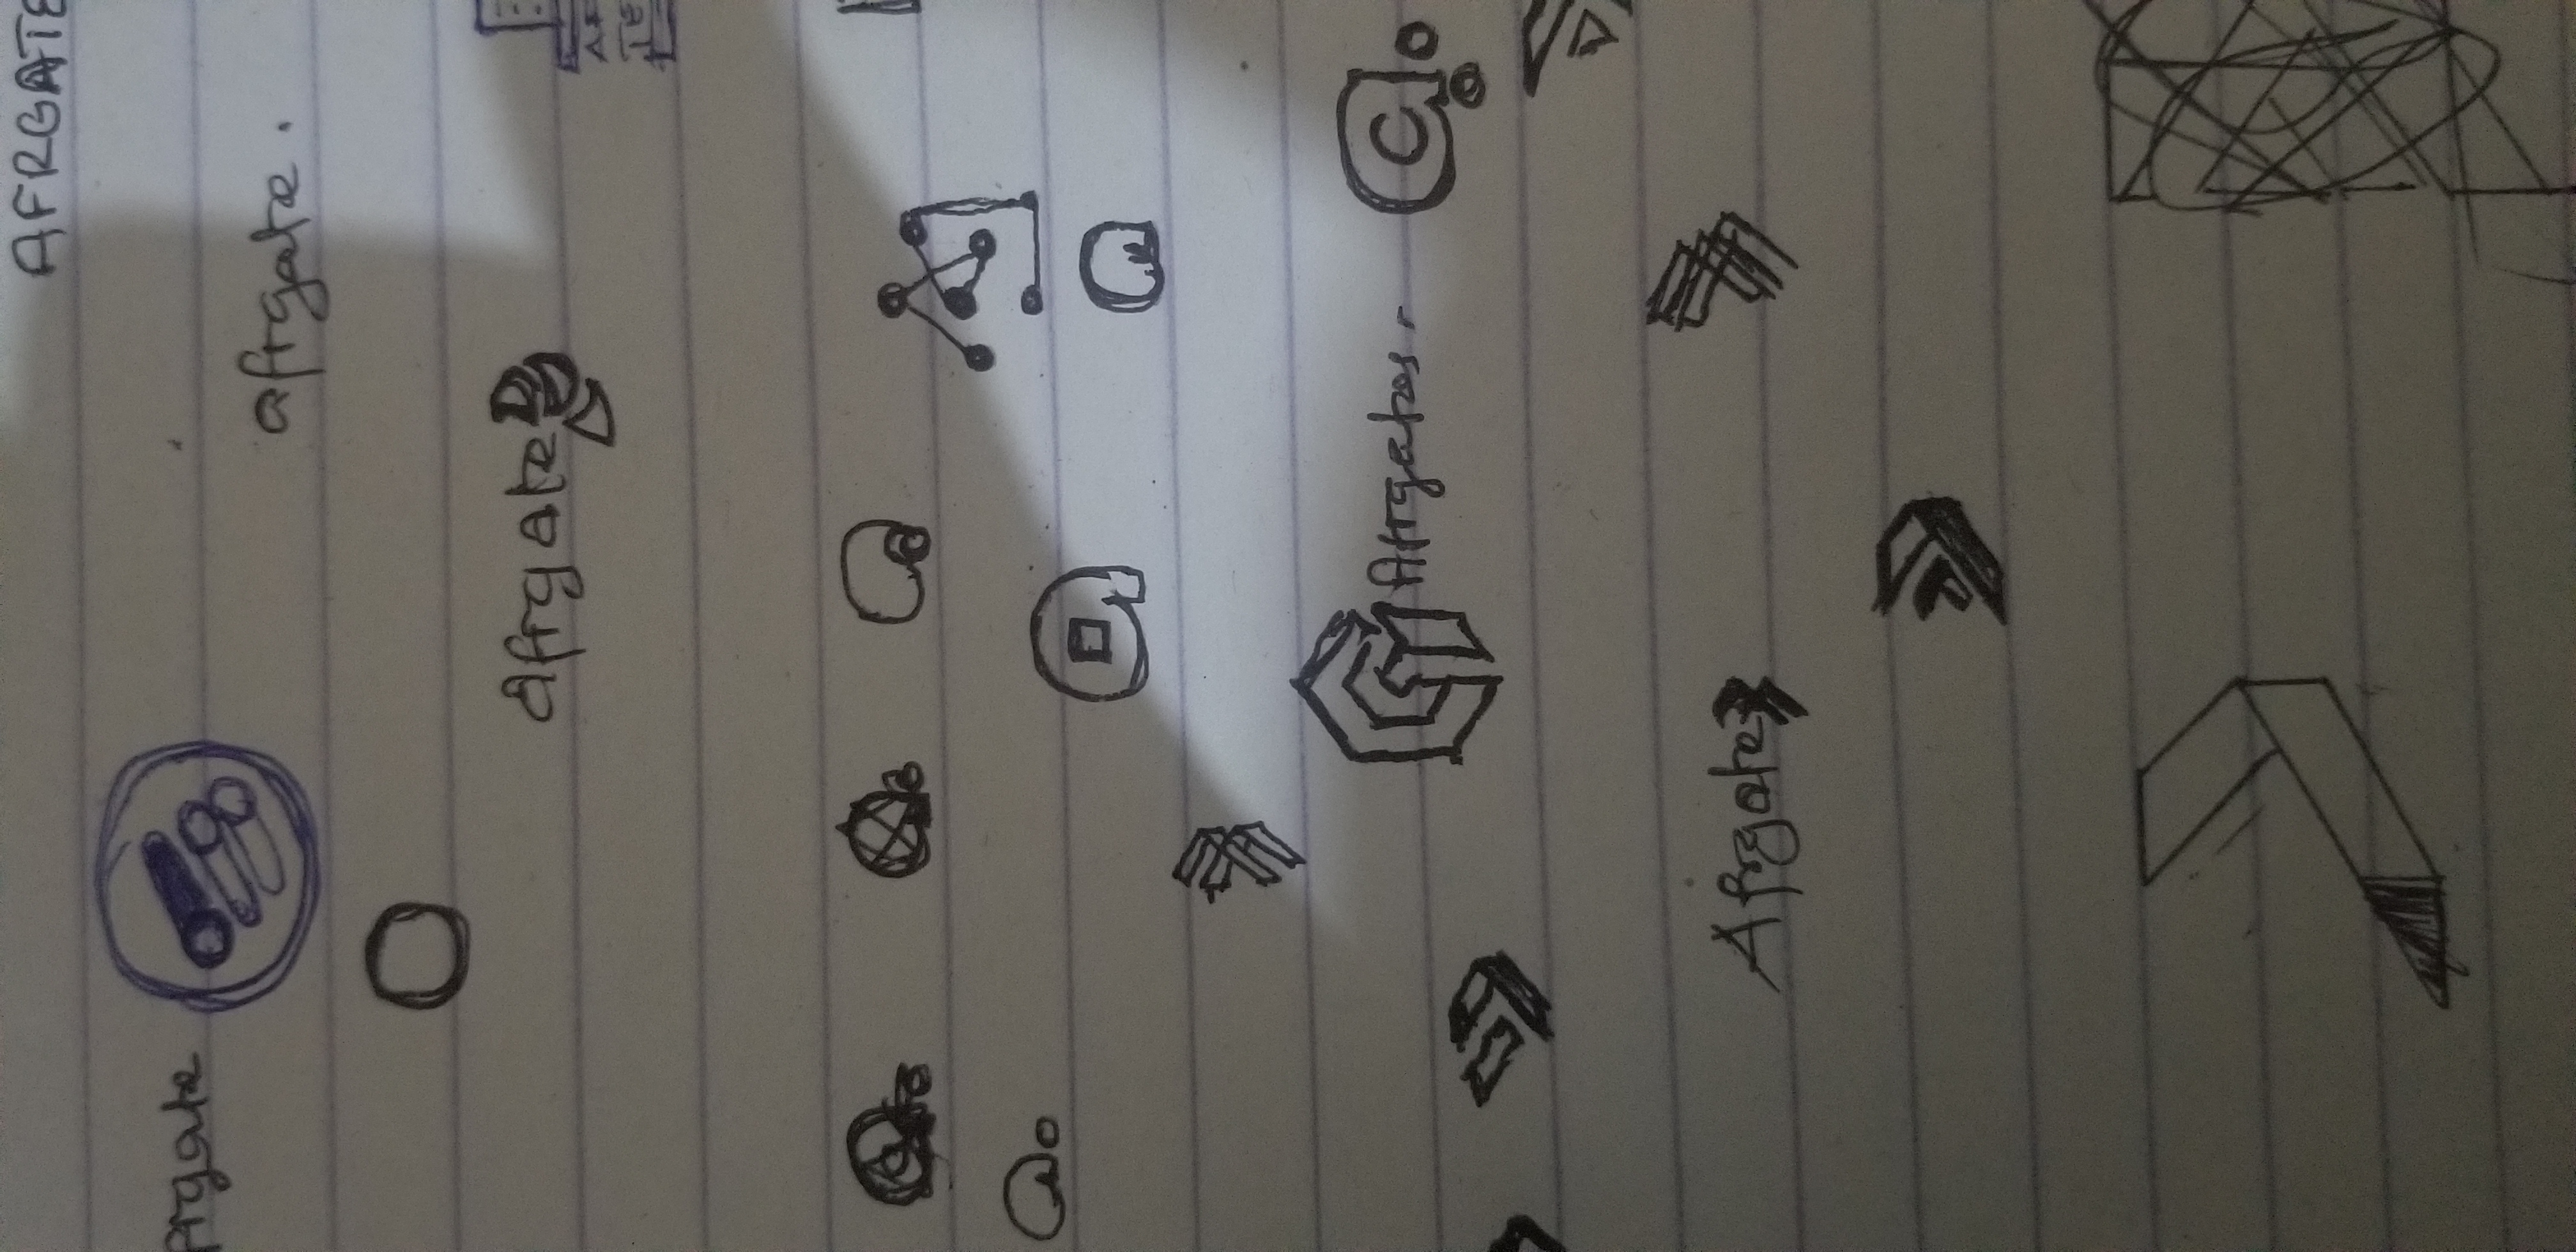 AFRGATE
frgate
afrgate.
Afrgate
AF
TE
C
Afrgate